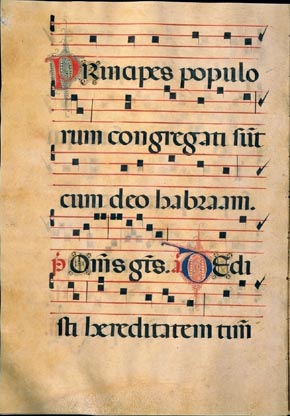 PRincipes populo
rum congregati sũt
cum deo habraam.
p̃ Om̃s gẽs. ã DEdi
sti hereditatem tim̃